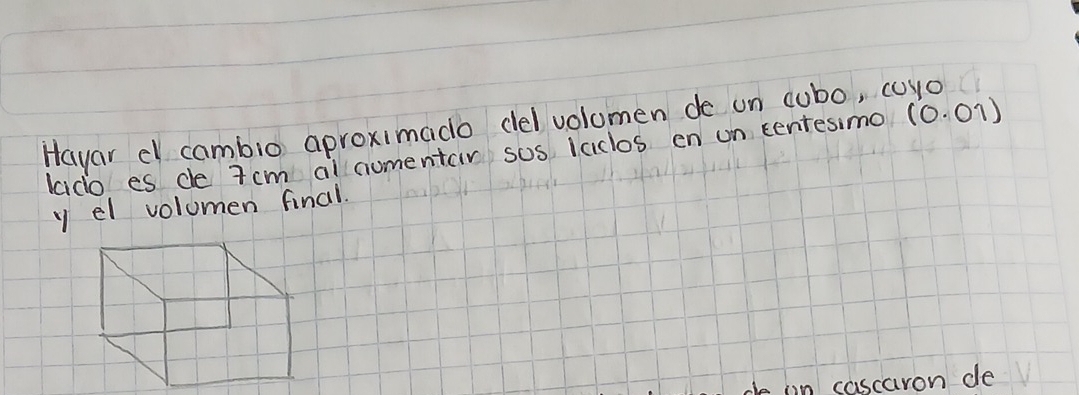 Hayar el cambio aproximado del volumen de un cubo, cuyo
lado es de 7cm al aumentar sus lados en un centesimo (0.01)
y el volumen final.
de un cascaron de